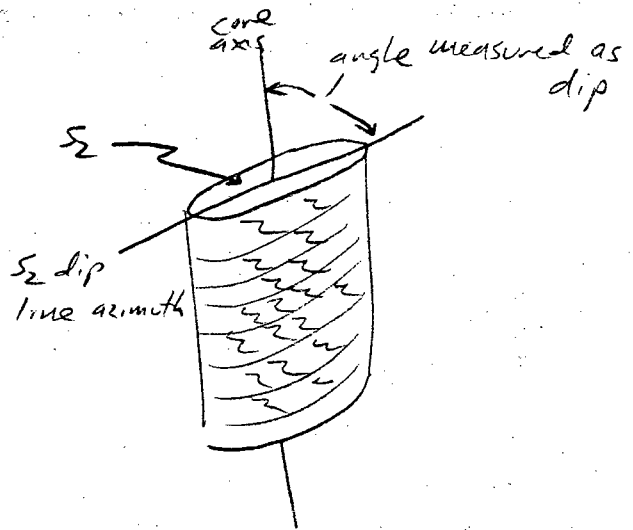 core
axis
angle measured as
dip
S2
S2 dip
line azimuth